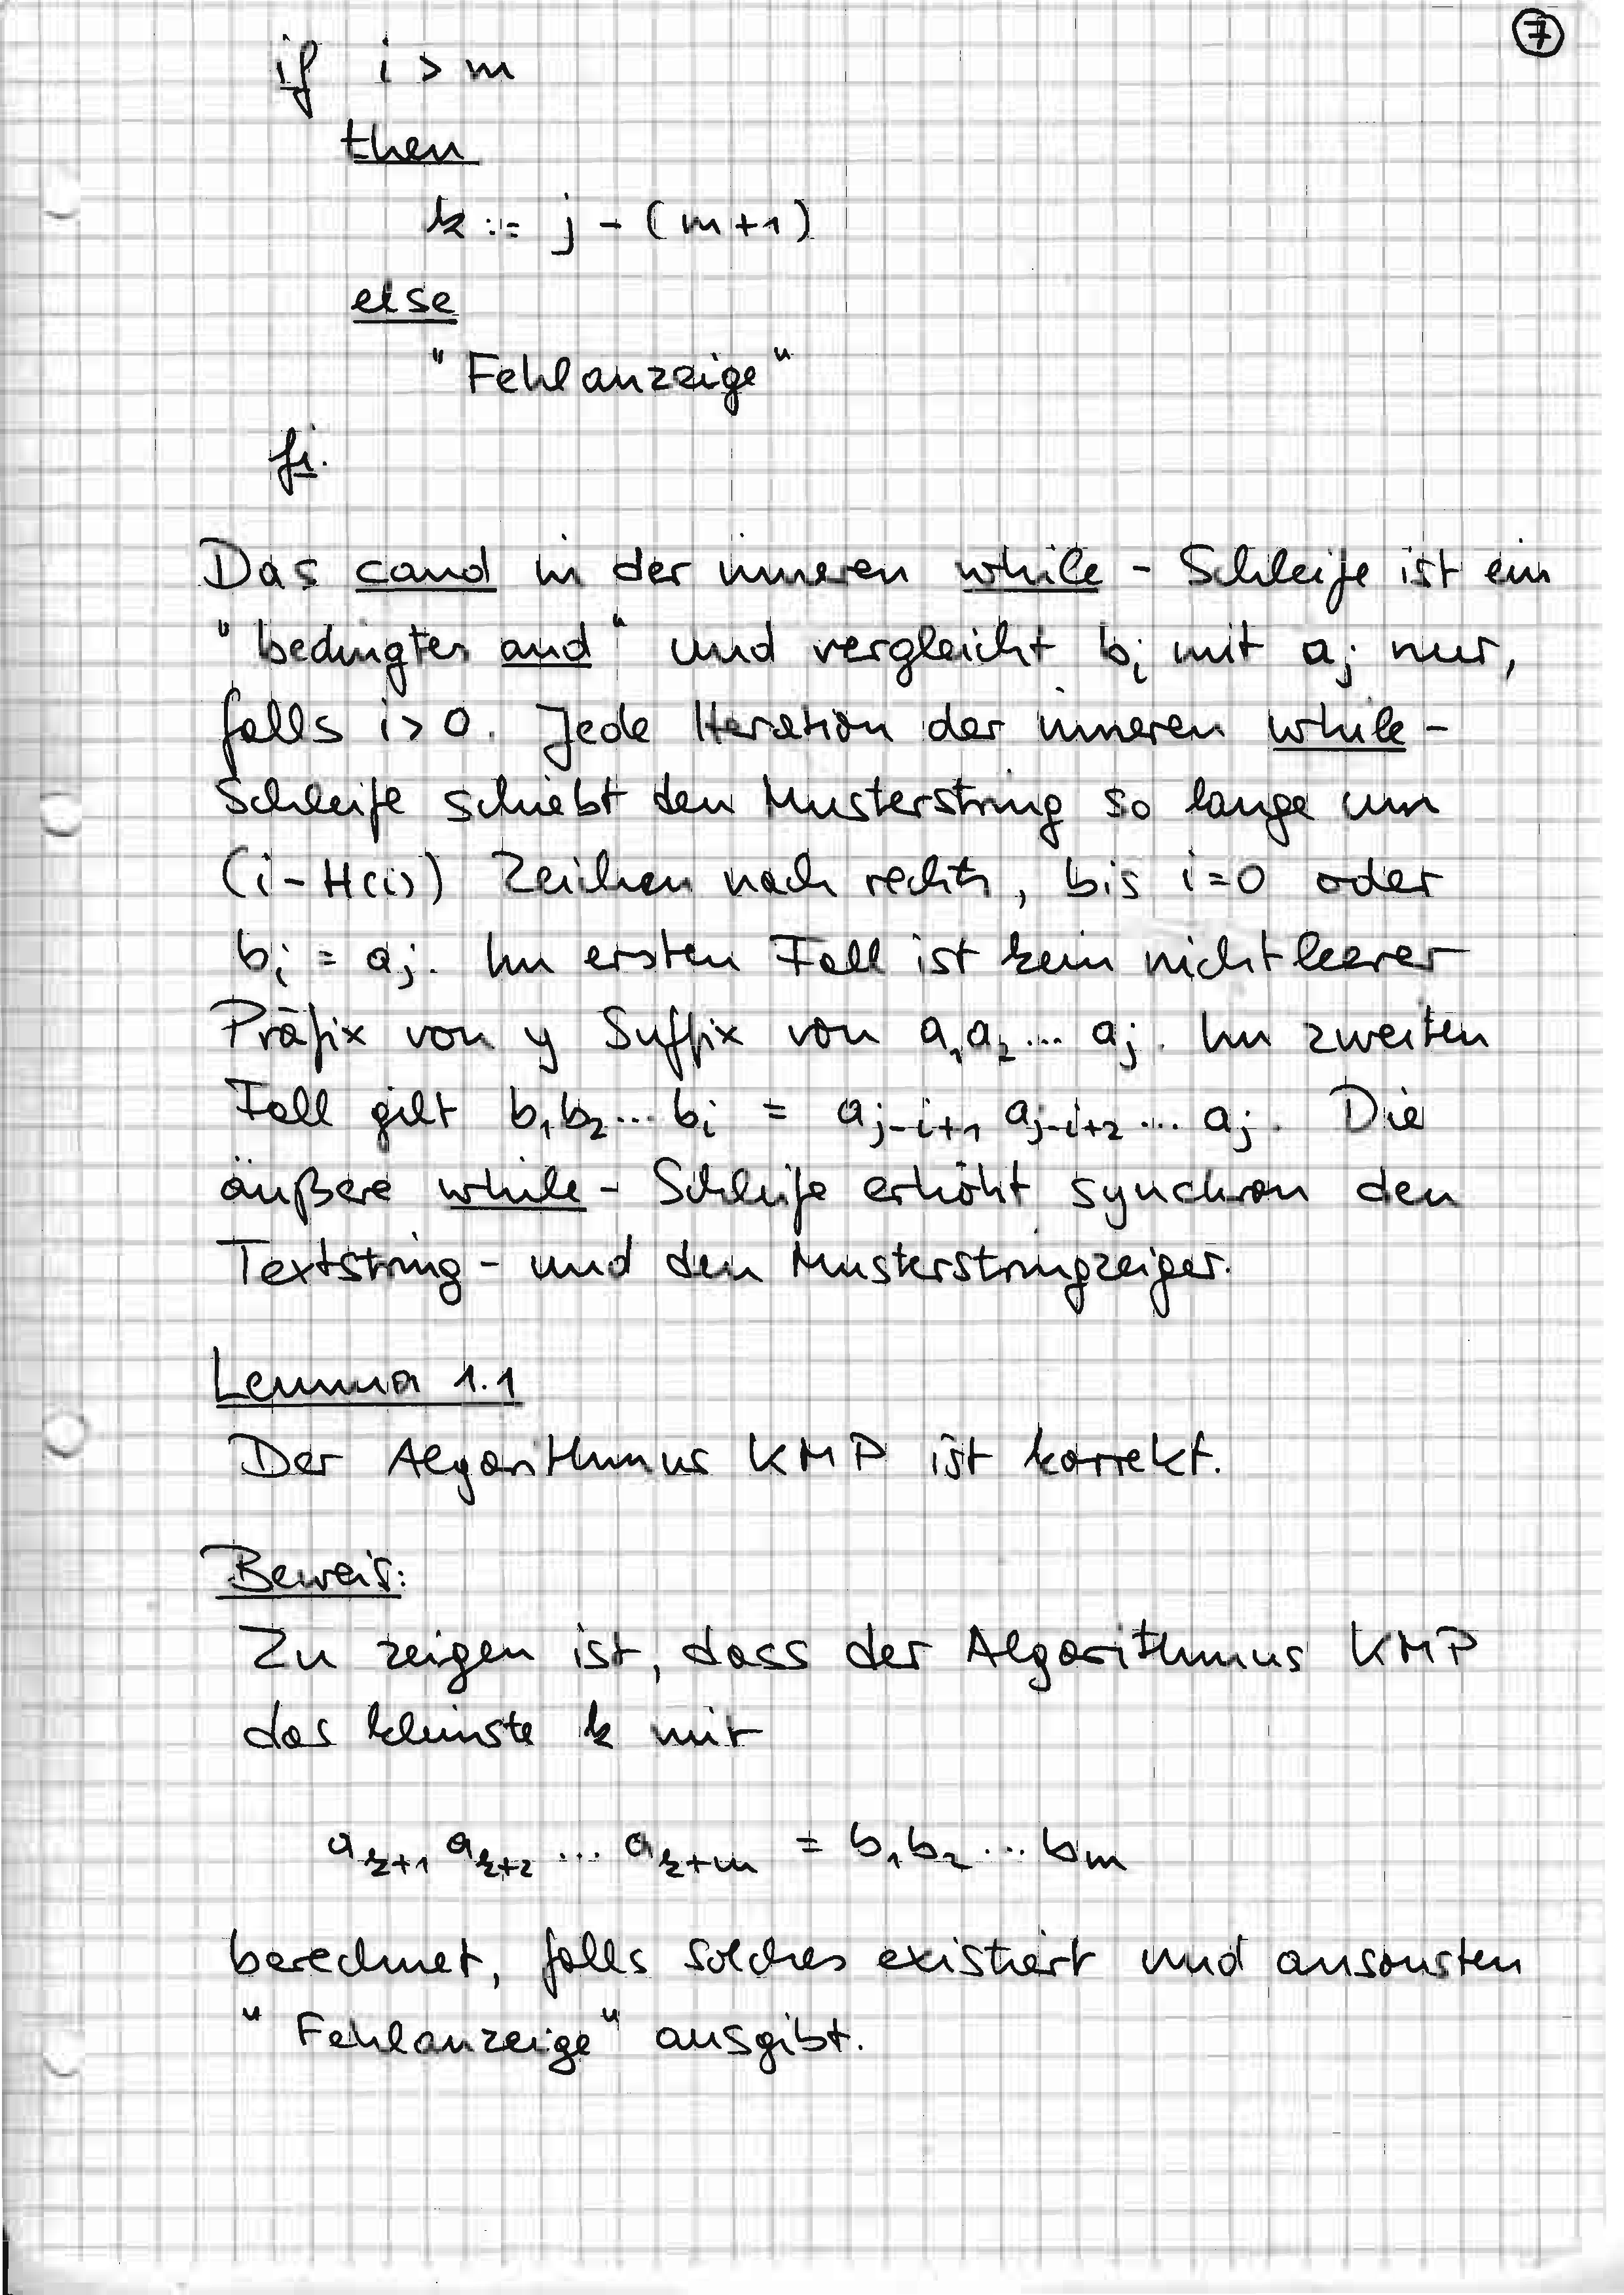 7
if i > m
then
k := j - (m+1)
else
"Fehlanzeige"
fi.
Das cand in der inneren while - Schleife ist ein
"bedingtes and" und vergleicht b_i mit a_j nur,
falls i > 0. Jede Iteration der inneren while -
Schleife schiebt den Musterstring so lange um
(i - H(i)) Zeichen nach rechts, bis i = 0 oder
b_i = a_j. Im ersten Fall ist kein nichtleerer
Präfix von y Suffix von a_1 a_2 ... a_j. Im zweiten
Fall gilt b_1 b_2 ... b_i = a_{j-i+1} a_{j-i+2} ... a_j. Die
äußere while - Schleife erhöht synchron den
Textstring - und den Musterstringzeiger.
Lemma 1.1
Der Algorithmus KMP ist korrekt.
Beweis:
Zu zeigen ist, dass der Algorithmus KMP
das kleinste k mit
a_{k+1} a_{k+2} ... a_{k+m} = b_1 b_2 ... b_m
berechnet, falls solches existiert und ansonsten
"Fehlanzeige" ausgibt.